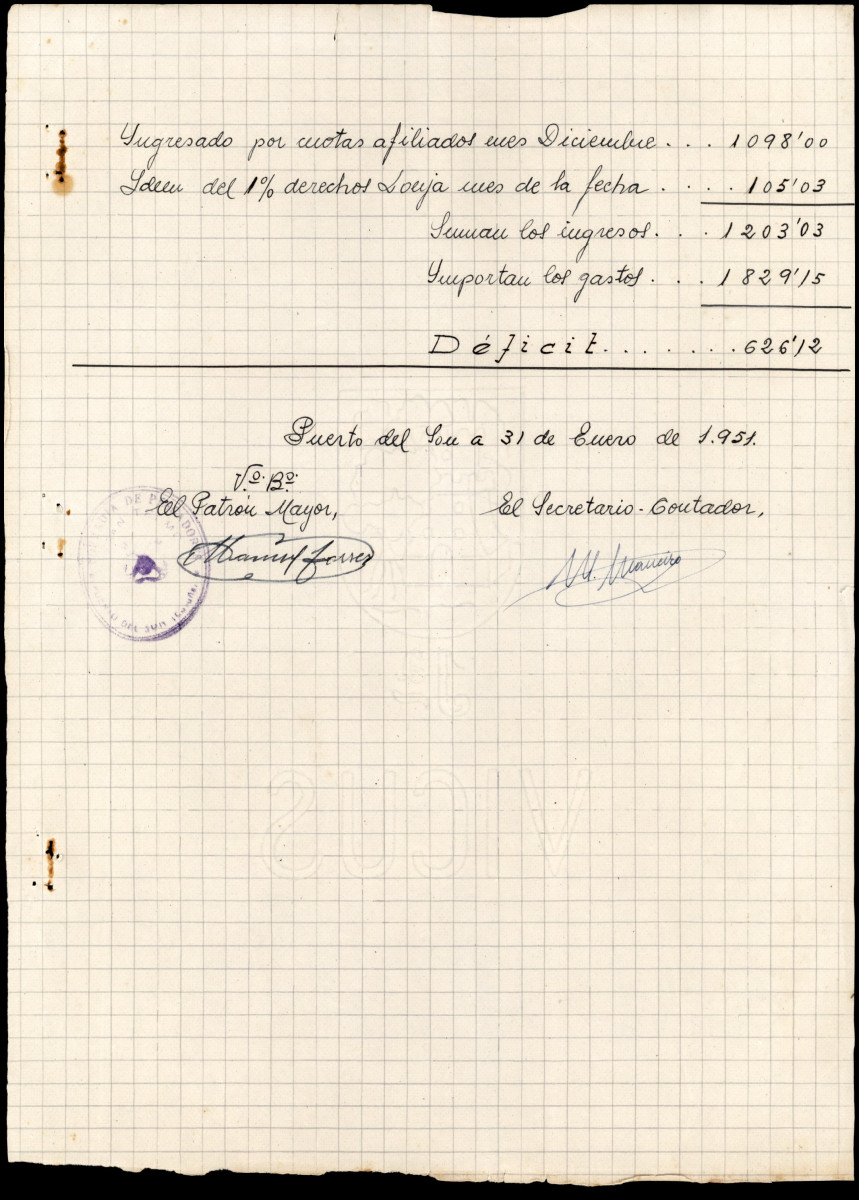 Yngresado por cuotas afiliados mes Diciembre... 1098'00
Idem del 1% derechos Lonja mes de la fecha.... 105'03
Suman los ingresos... 1203'03
Ymportan los gastos... 1829'15
Déficit....... 626'12
Puerto del Son a 31 de Enero de 1.951.
V.º B.º
El Patrón Mayor,
El Secretario-Contador,
DE PESCADORES
DEL SON
Manuel
M. Maneiro
VICUS